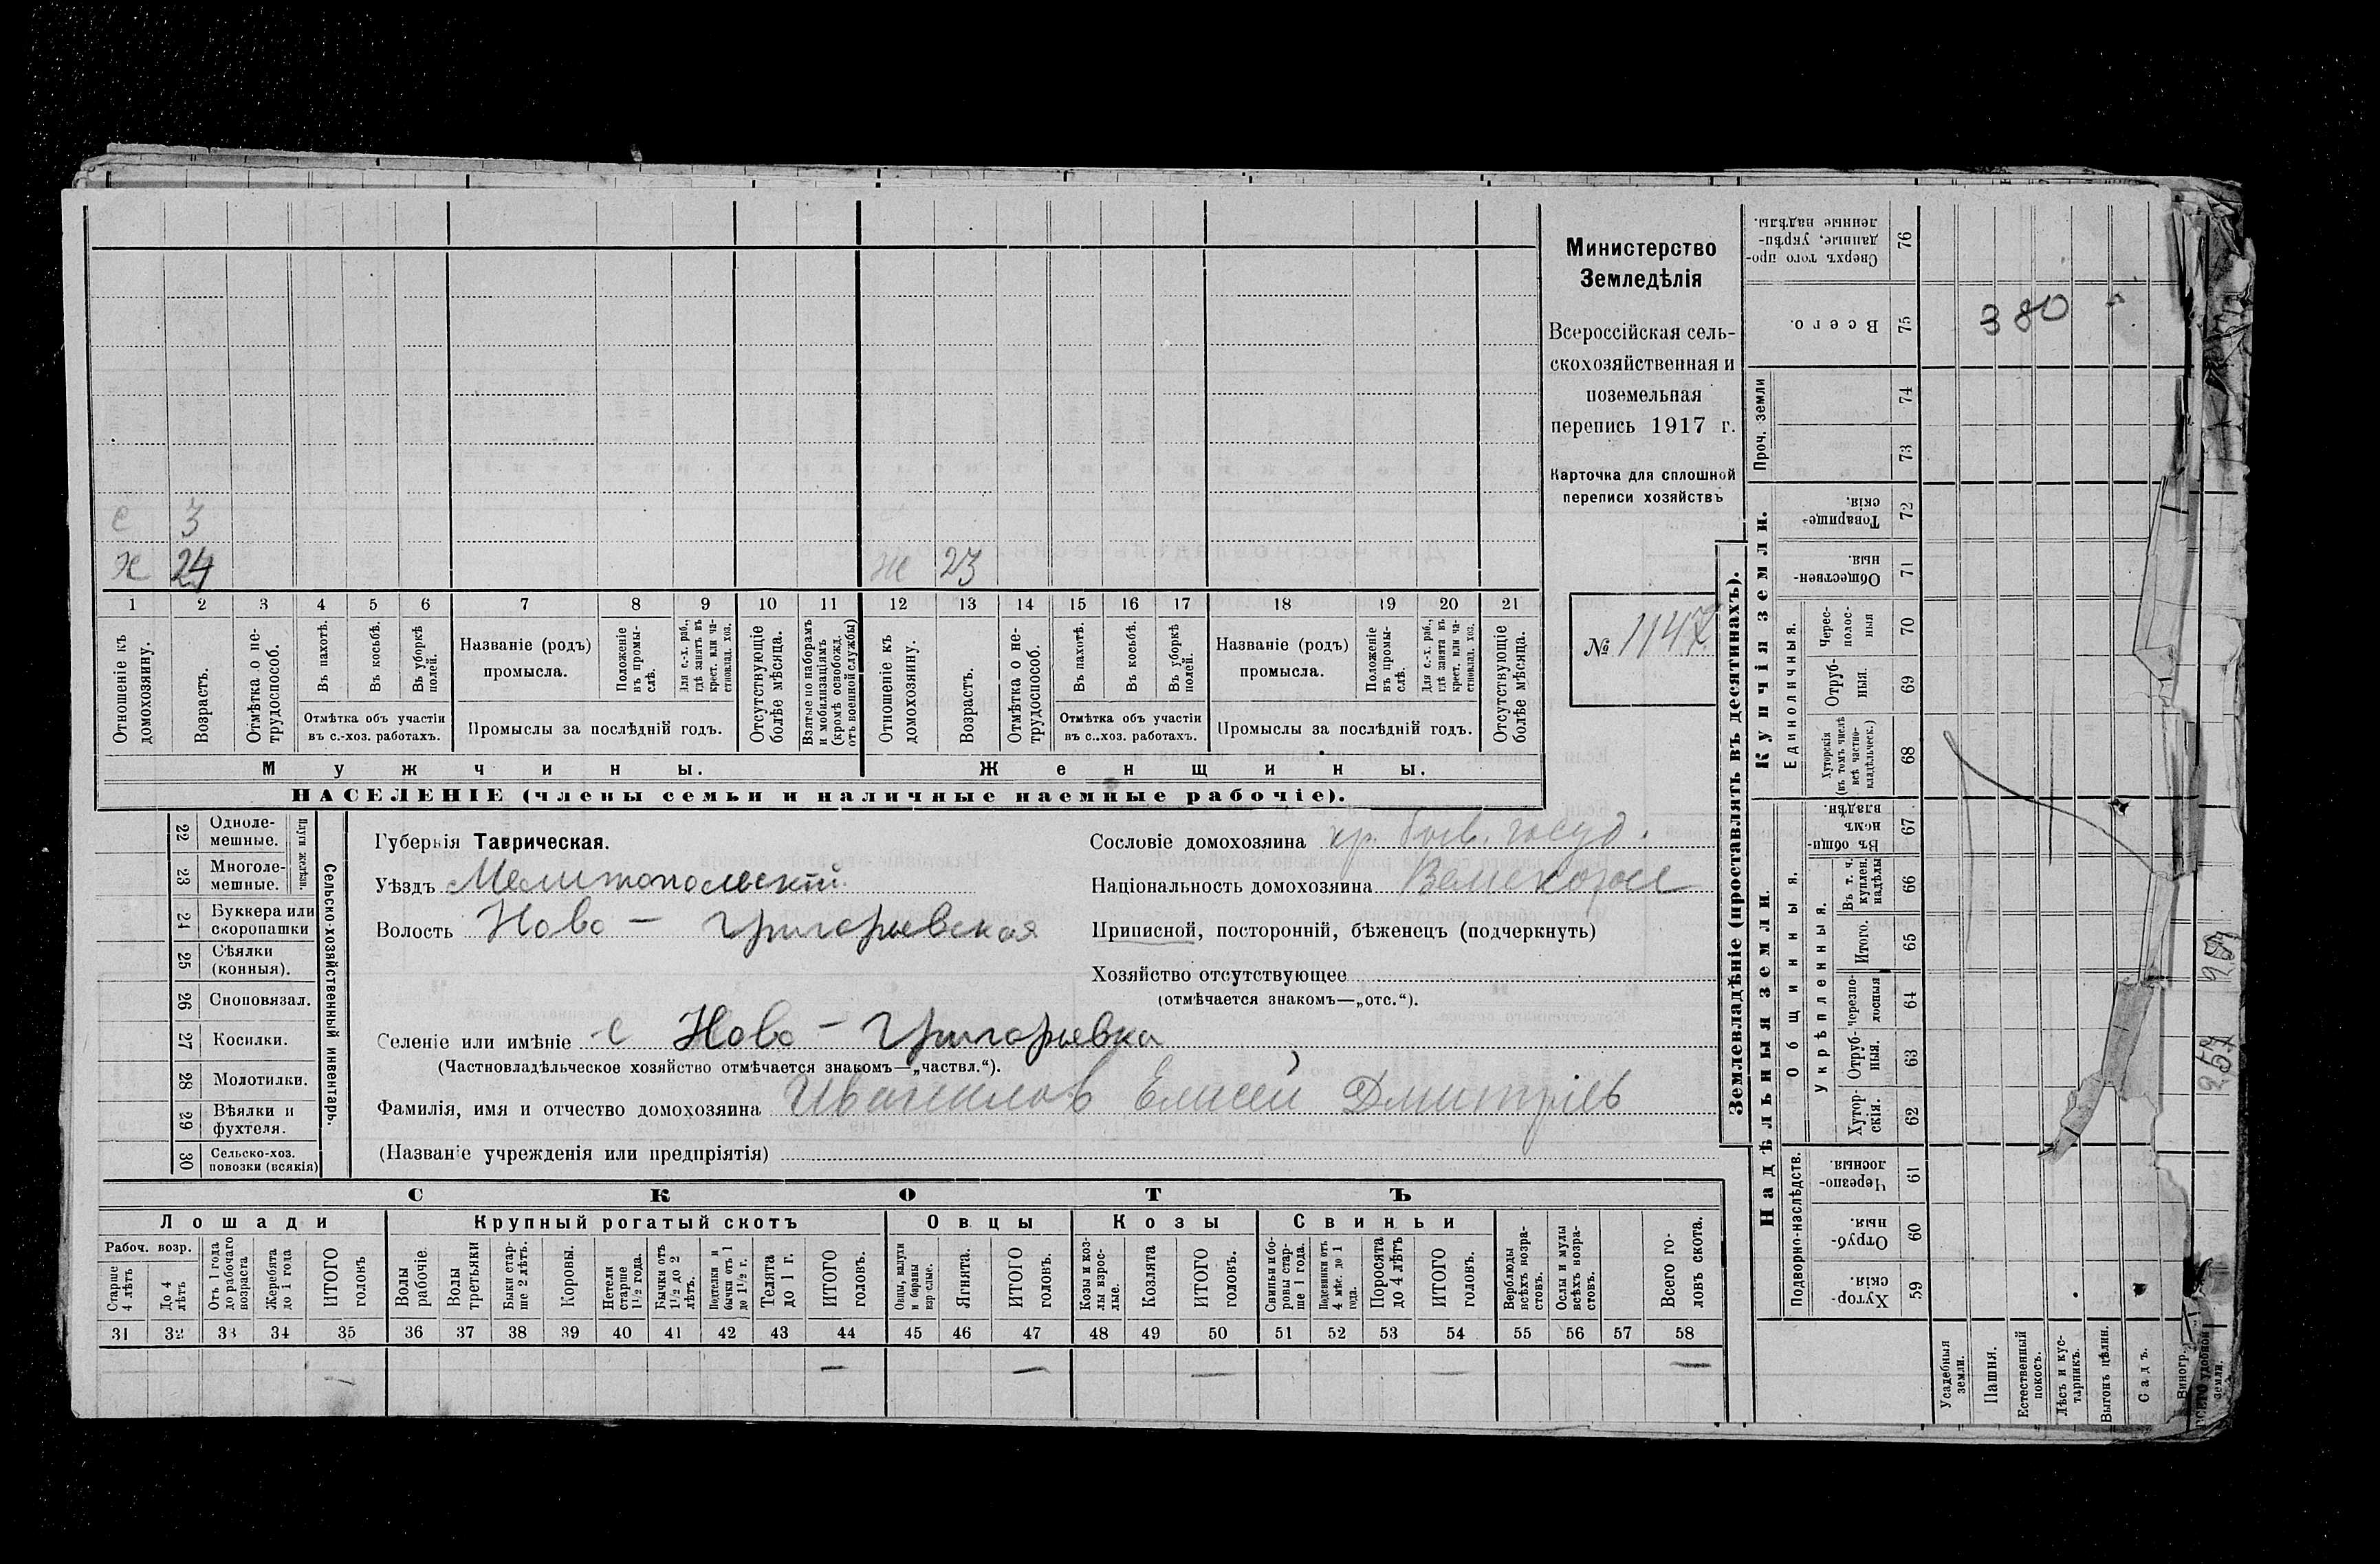 Министерство
Земледѣлія
Всероссійская сель-
скохозяйственная и
поземельная
перепись 1917 г.
Карточка для сплошной
переписи хозяйствъ
№ 1147
с 3
х 24 ж 23
1 2 3 4 5 6 7 8 9 10 11 12 13 14 15 16 17 18 19 20 21
Отношеніе къ домохозяину.
Возрастъ.
Отмѣтка о не-трудоспособ.
Въ пахотѣ.
Въ косьбѣ.
Въ уборкѣ полей.
Отмѣтка объ участіи
въ с.-хоз. работахъ.
Названіе (родъ)
промысла.
Положеніе въ промы-слѣ.
Для с.-х. раб., гдѣ занятъ въ крест. или ча-стновлад. хоз.
Промыслы за послѣдній годъ.
Отсутствующіе болѣе мѣсяца.
Взятые по наборамъ и мобилизаціямъ (кромѣ освобожд. отъ военной службы)
Отношеніе къ домохозяину.
Возрастъ.
Отмѣтка о не-трудоспособ.
Въ пахотѣ.
Въ косьбѣ.
Въ уборкѣ полей.
Отмѣтка объ участіи
въ с.-хоз. работахъ.
Названіе (родъ)
промысла.
Положеніе въ промы-слѣ.
Для с.-х. раб., гдѣ занятъ въ крест. или ча-стновлад. хоз.
Промыслы за послѣдній годъ.
Отсутствующіе болѣе мѣсяца.
Мужчины. Женщины.
НАСЕЛЕНІЕ (члены семьи и наличные наемные рабочіе).
Сельско-хозяйственный инвентарь.
Плуги желѣзн.
22 Одноле-мешные.
23 Многоле-мешные.
24 Буккера или скоропашки
25 Сѣялки (конныя).
26 Сноповязал.
27 Косилки.
28 Молотилки.
29 Вѣялки и фухтеля.
30 Сельско-хоз. повозки (всякія)
Губернія Таврическая.
Уѣздъ Мелитопольскій
Волость Ново-Григорьевская
Селеніе или имѣніе с Ново-Григорьевка
(Частновладѣльческое хозяйство отмѣчается знакомъ—„частвл.“).
Фамилія, имя и отчество домохозяина Ивашилов Елисей Дмитріев
(Названіе учрежденія или предпріятія)
Сословіе домохозяина кр. быв. госуд.
Національность домохозяина Великорос
Приписной, посторонній, бѣженецъ (подчеркнуть)
Хозяйство отсутствующее
(отмѣчается знакомъ—„отс.“).
СКОТЪ
Лошади Крупный рогатый скотъ Овцы Козы Свиньи
Рабоч. возр.
Старше 4 лѣтъ
До 4 лѣтъ
Отъ 1 года до рабочаго возраста
Жеребята до 1 года
ИТОГО головъ
Волы рабочіе
Волы третьяки
Быки стар-ше 2 лѣтъ.
Коровы.
Нетели старше 1 1/2 года.
Бычки отъ 1 1/2 до 2 лѣтъ.
Подтелки и бычки отъ 1 до 1 1/2 г.
Телята до 1 г.
ИТОГО головъ.
Овцы, валухи и бараны взрослые.
Ягнята.
ИТОГО головъ.
Козы и коз-лы взрос-лые.
Козлята
ИТОГО головъ.
Свиньи и бо-ровы стар-ше 1 года.
Подсвинки отъ 4 мѣс. до 1 года.
Поросята до 4 лѣтъ
ИТОГО головъ.
Верблюды всѣхъ возра-стовъ.
Ослы и мулы всѣхъ возра-стовъ.
Всего го-ловъ скота.
31 32 33 34 35 36 37 38 39 40 41 42 43 44 45 46 47 48 49 50 51 52 53 54 55 56 57 58
— — — — — —
Землевладѣніе (проставлять въ десятинахъ).
Купчія земли.
Надѣльныя земли.
Сверхъ того про-данные, укрѣп-ленные надѣлы. 76
Всего. 75 380
Проч. земли 74 73
Товарище-скія. 72
Обществен-ныя. 71
Единоличныя.
Черес-полос-ныя 70
Отруб-ныя. 69
Хуторскія (въ томъ числѣ всѣ частно-владѣльческ.) 68
Общинныя.
Въ общи-номъ владѣн. 67
Укрѣпленныя.
Въ т. ч. куплен. надѣлы 66
Итого. 65
Черезпо-лосныя 64
Отруб-ныя. 63
Хутор-скія. 62
Подворно-наслѣдств.
Черезпо-лосныя. 61
Отруб-ныя. 60
Хутор-скія. 59
Усадебныя земли.
Пашня.
Естественный покосъ.
Лѣсъ и кус-тарникъ.
Выгонъ цѣлин.
Садъ.
Виногр.
ВСЕГО удобной земли.